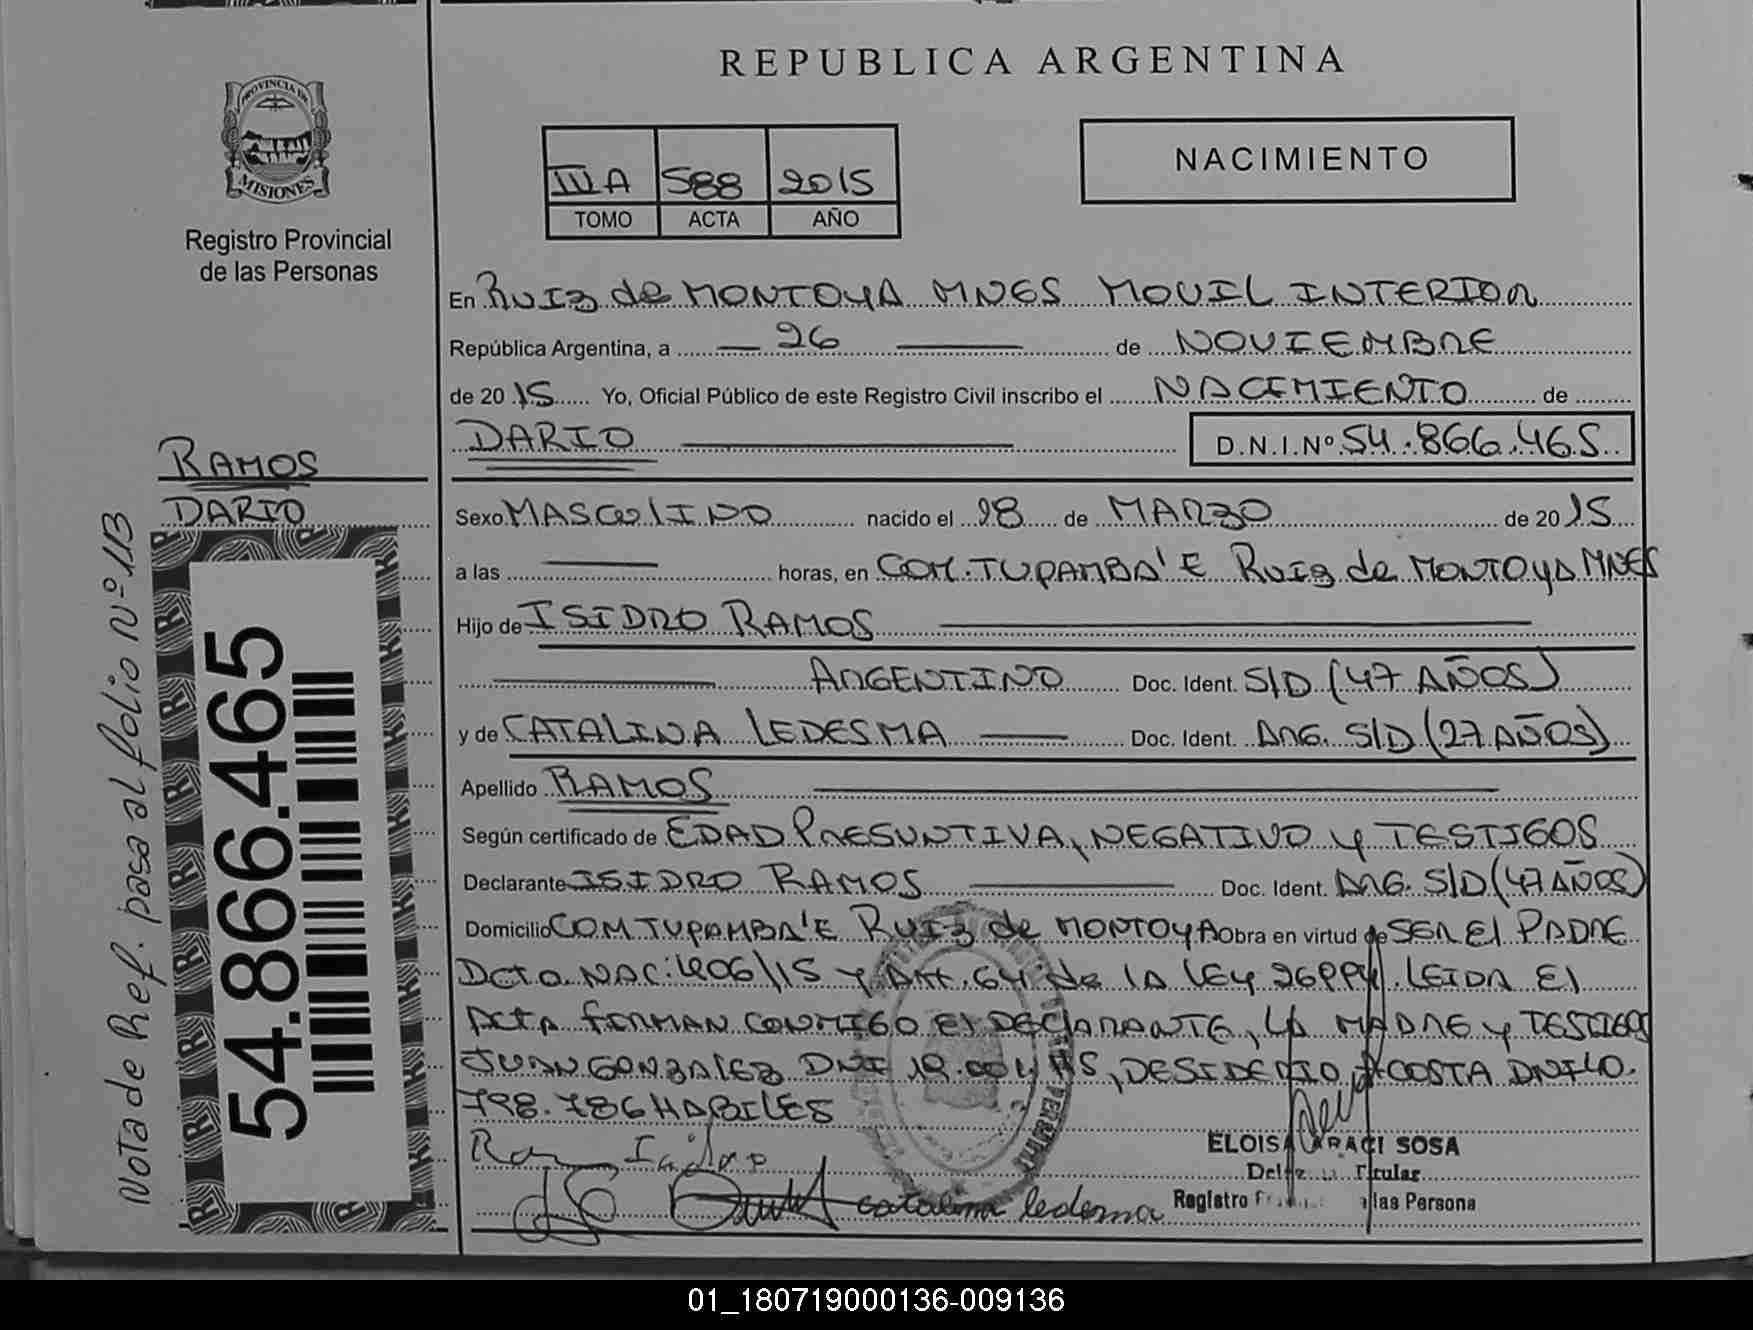 REPUBLICA ARGENTINA
PROVINCIA DE
MISIONES
Registro Provincial
de las Personas
NACIMIENTO
588 2015
TOMO ACTA AÑO
En Ruiz de MONTOYA MNES MOVIL INTERIOR
República Argentina, a 26 de NOVIEMBRE
de 2015 Yo, Oficial Público de este Registro Civil inscribo el NACIMIENTO de
DARIO D.N.I.Nº 54.866.465
RAMOS
DARIO
Nota de Ref. pasa al folio Nº 113
54.866.465
Sexo MASCULINO nacido el 28 de MARZO de 2015
a las horas, en COM. TUPAMBA'E Ruiz de MONTOYA MNES
Hijo de ISIDRO RAMOS
ARGENTINO Doc. Ident. S/D (47 AÑOS)
y de CATALINA LEDESMA Doc. Ident. ARG. S/D (27 AÑOS)
Apellido RAMOS
Según certificado de EDAD PRESUNTIVA, NEGATIVO y TESTIGOS
Declarante ISIDRO RAMOS Doc. Ident. ARG. S/D (47 AÑOS)
Domicilio COM TUPAMBA'E Ruiz de MONTOYA Obra en virtud de SER El PADRE
Dcto. NAC. 406/15 y Art. 64 de la LEY 26994. LEIDA El
ACTA FIRMAN CONMIGO El DECLARANTE, LA MADRE y TESTIGOS
JUAN GONZALEZ DNI DESIDERIO ACOSTA DNI 40.
798.786 HABILES
catalina ledesma
ELOISA ARACI SOSA
Titular
Registro las Persona
01_180719000136-009136